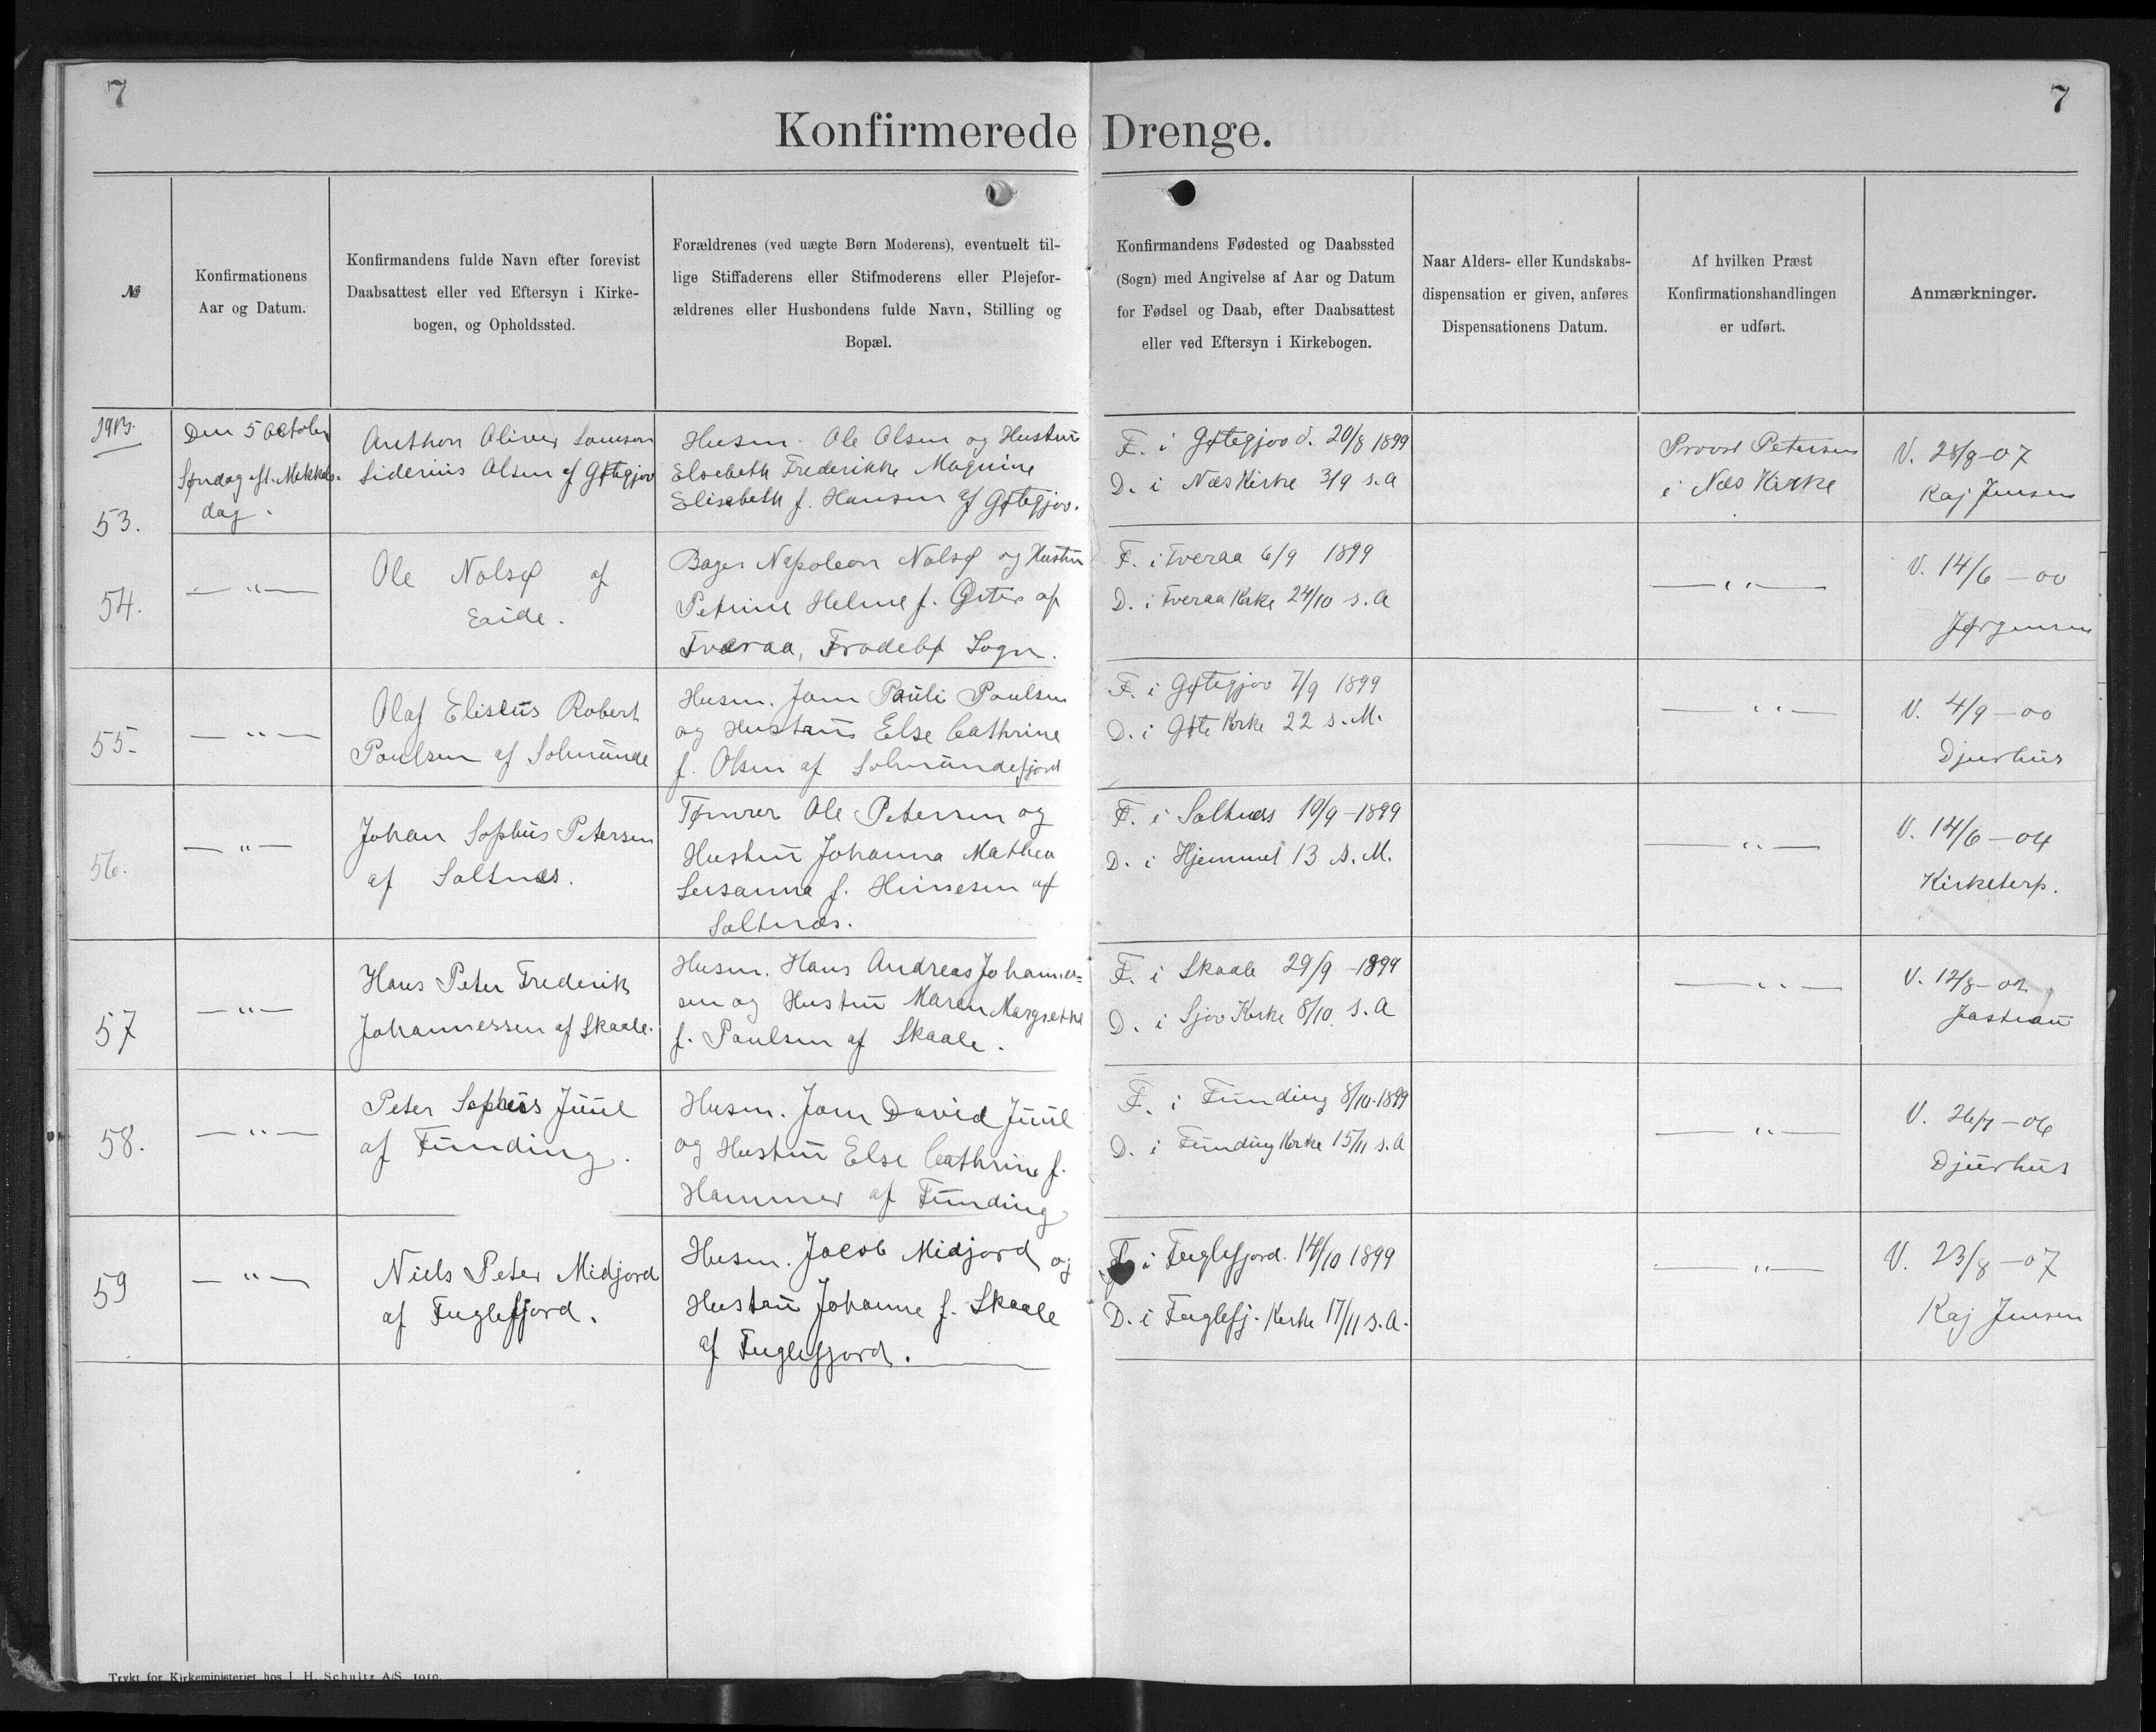 7
7
Konfirmerede Drenge.
№
Konfirmationens
Aar og Datum.
Konfirmandens fulde Navn efter forevist
Daabsattest eller ved Eftersyn i Kirke-
bogen, og Opholdssted.
Forældrenes (ved uægte Børn Moderens), eventuelt til-
lige Stiffaderens eller Stifmoderens eller Plejefor-
ældrenes eller Husbondens fulde Navn, Stilling og
Bopæl.
Konfirmandens Fødested og Daabssted
(Sogn) med Angivelse af Aar og Datum
for Fødsel og Daab, efter Daabsattest
eller ved Eftersyn i Kirkebogen.
Naar Alders- eller Kundskabs-
dispensation er given, anføres
Dispensationens Datum.
Af hvilken Præst
Konfirmationshandlingen
er udført.
Anmærkninger.
1913.
53.
Den 5 October
Søndag eft. Mikkels-
dag.
Anthon Oliver Samson
Siderius Olsen af Gøtegjov
Husm. Ole Olsen og Hustru
Elsebeth Frederikke Magnine
Elisabeth f. Hansen af Gøtegjov.
F. i Gøtegjov d. 20/8 1899
D. i Næs Kirke 3/9 s.A
Provst Petersen
i Næs Kirke
V. 28/8-07
Kaj Jensen
54.
— " —
Ole Nolsø af
Eide.
Bager Napoleon Nolsø og Hustru
Petrine Helene f. Øster af
Tveraa, Frodebø Sogn.
F. i Tveraa 6/9 1899
D. i Tveraa Kirke 24/10 s.A
— " —
V. 14/6 — 00
Jørgensen
55.
— " —
Olaf Elisæus Robert
Poulsen af Solmunde
Husm. Joen Pauli Poulsen
og Hustru Else Cathrine
f. Olsen af Solmundefjord
F. i Gøtegjov 7/9 1899
D. i Gøte Kirke 22 s.M.
— " —
V. 4/9 — 00
Djurhus
56.
— " —
Johan Sophus Petersen
af Saltnæs.
Tømrer Ole Petersen og
Hustru Johanna Mathea
Susanna f. Heinesen af
Saltnæs.
F. i Saltnæs 10/9 -1899
D. i Hjemmet 13 s.M.
— " —
V. 14/6 — 04
Kirketerp.
57
— " —
Hans Peter Frederik
Johannessen af Skaale.
Husm. Hans Andreas Johannes-
sen og Hustru Maren Margrethe
f. Poulsen af Skaale.
F. i Skaale 29/9 -1899
D. i Sjov Kirke 8/10 s.A
— " —
V. 12/8-02
Jastrau
58.
— " —
Peter Sophus Juul
af Funding.
Husm. Joen David Juul
og Hustru Else Cathrine f.
Hammer af Funding
F. i Funding 8/10-1899
D. i Funding Kirke 15/11 s.A
— " —
V. 26/7 — 06
Djurhus
59
— " —
Niels Peter Midjord
af Fuglefjord.
Husm. Jacob Midjord og
Hustru Johanne f. Skaale
af Fuglefjord.
F. i Fuglefjord. 14/10 1899
D. i Fuglefj. Kirke 17/11 s.A.
— " —
V. 23/8 — 07
Kaj Jensen
Trykt for Kirkeministeriet hos J. H. Schultz A/S. 1910.